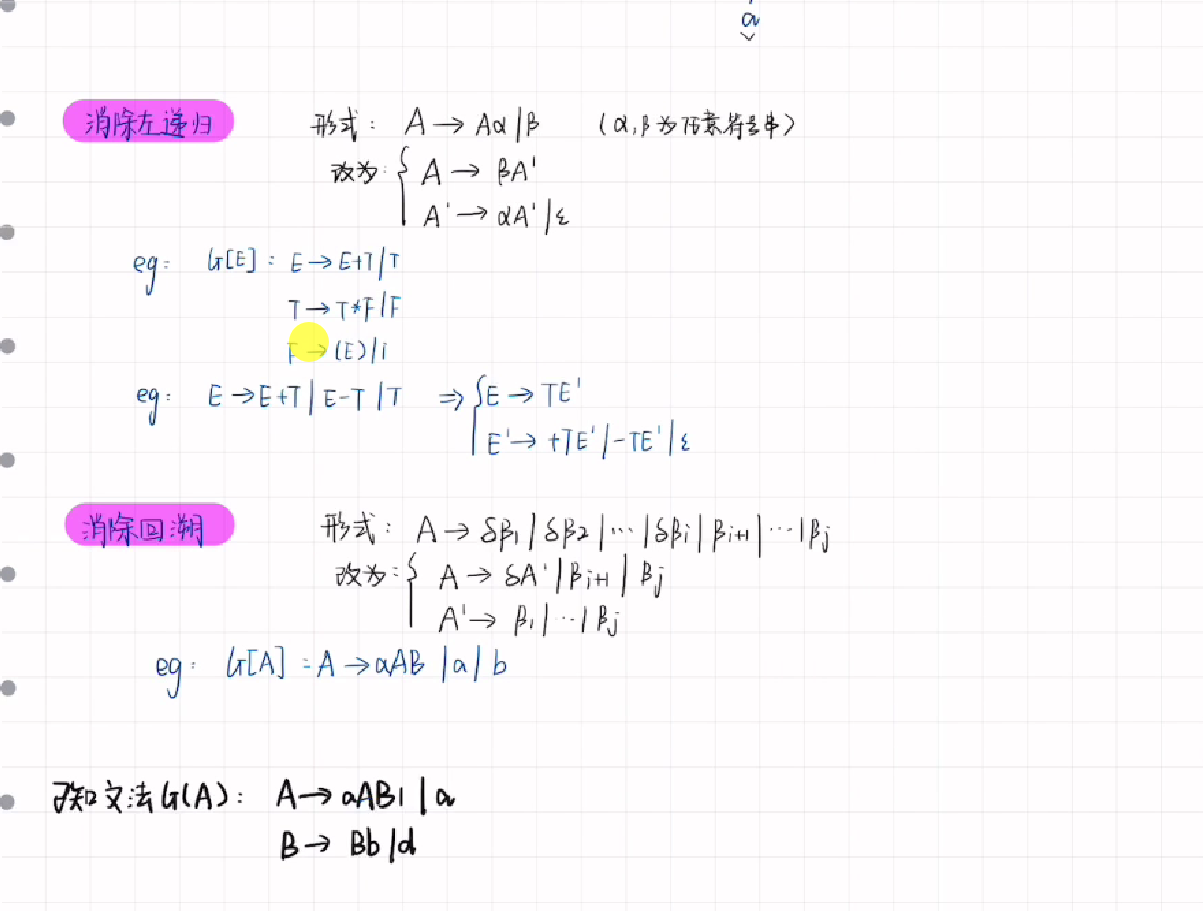 a
消除左递归 形式: A → Aα|β (α,β为任意符号串)
改为: { A → βA'
A' → αA'|ε
eg: G[E]: E → E+T|T
T → T*F|F
F → (E)|i
eg: E → E+T|E-T|T ⇒ { E → TE'
E' → +TE'|-TE'|ε
消除回溯 形式: A → δβ₁|δβ₂|…|δβi|βi+1|…|βj
改为: { A → δA'|βi+1|βj
A' → β₁|…|βj
eg: G[A]: A → aAB|a|b
已知文法G(A): A → aABl|a
B → Bb|d